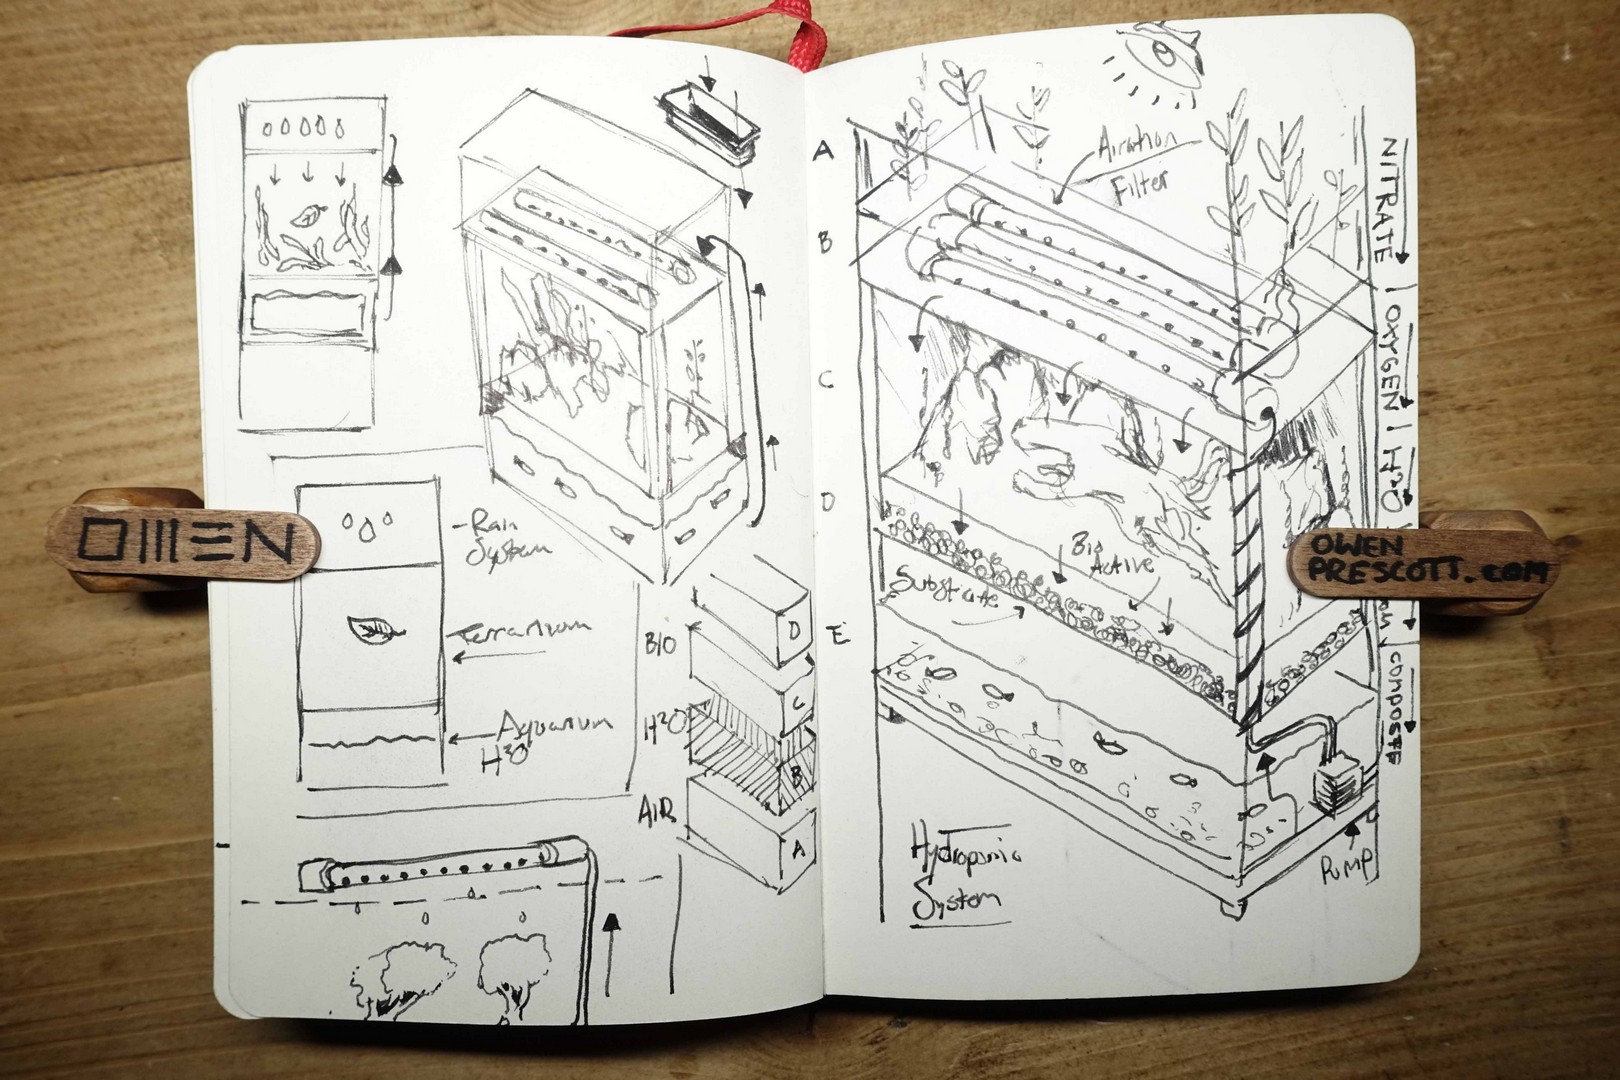 OWEN
-Rain
System
Terrarium
Aquarium
H²O
BIO
H²O
AIR
D
C
B
A
A
B
C
D
E
Airation
Filter
Bio
Active
Substrate
Hydroponic
System
PUMP
NITRATE | OXYGEN | H²O
compost
OWEN
PRESCOTT.COM